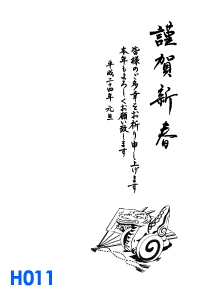 謹賀新春
皆様のご多幸をお祈り申し上げます
本年もよろしくお願い致します
平成二十四年 元旦
H011